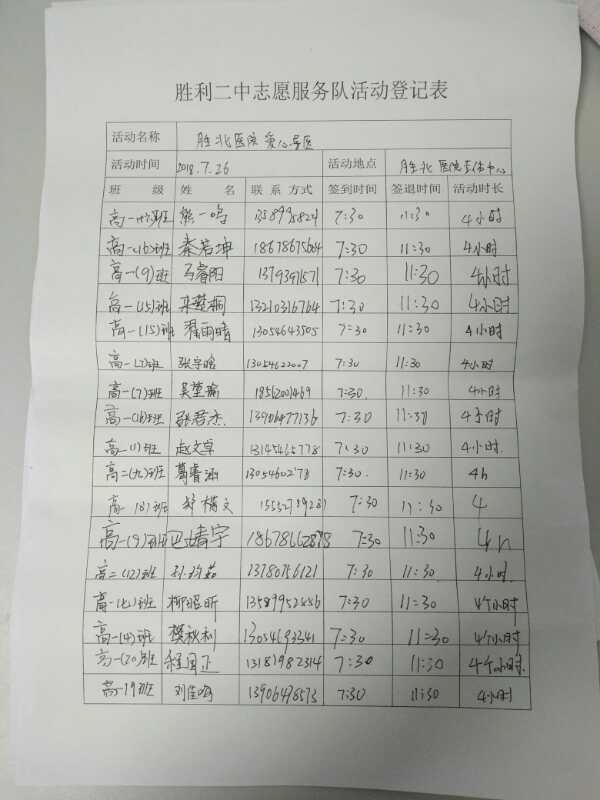 胜利二中志愿服务队活动登记表
活动名称 胜北医院爱心导医
活动时间 2018.7.26 活动地点 胜北医院
班 级 姓 名 联系方式 签到时间 签退时间 活动时长
高一 班 熊一鸣 7:30 11:30 4小时
高一(16)班 秦若坤 18678675664 7:30 11:30 4小时
高一(9)班 马睿阳 7:30 11:30 4小时
高一(15)班 桐 13210316764 7:30 11:30 4小时
高一(15)班 雨晴 13054643505 7:30 11:30 4小时
高一 班 张宇晗 13054622007 7:30 11:30 4小时
高一(7)班 吴堇瑜 18562001469 7:30 11:30 4小时
高一(18)班 张君杰 13906477136 7:30 11:30 4小时
高一(1)班 赵文卓 13145465778 7:30 11:30 4小时
高二(九)班 葛睿涵 7:30 11:30 4h
高一(8)班 文 7:30 11:30 4
高一(9)班 巴婧宇 18678662878 7:30 11:30 4h
高二(12)班 13780756121 7:30 11:30 4小时
高一 班 柳昭昕 13589952456 7:30 11:30 4个小时
高一(4)班 秋利 13054693341 7:30 11:30 4个小时
高一(20)班 程国正 13181982314 7:30 11:30 4个小时
高一19班 刘佳鸣 13906498573 7:30 11:30 4小时